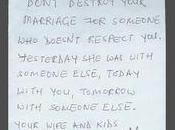 DONT DESTROY YOUR
MARRIAGE FOR SOMEONE
WHO DOESN'T RESPECT YOU.
YESTERDAY SHE WAS WITH
SOMEONE ELSE, TODAY
WITH YOU, TOMORROW
WITH SOMEONE ELSE.
YOUR WIFE AND KIDS